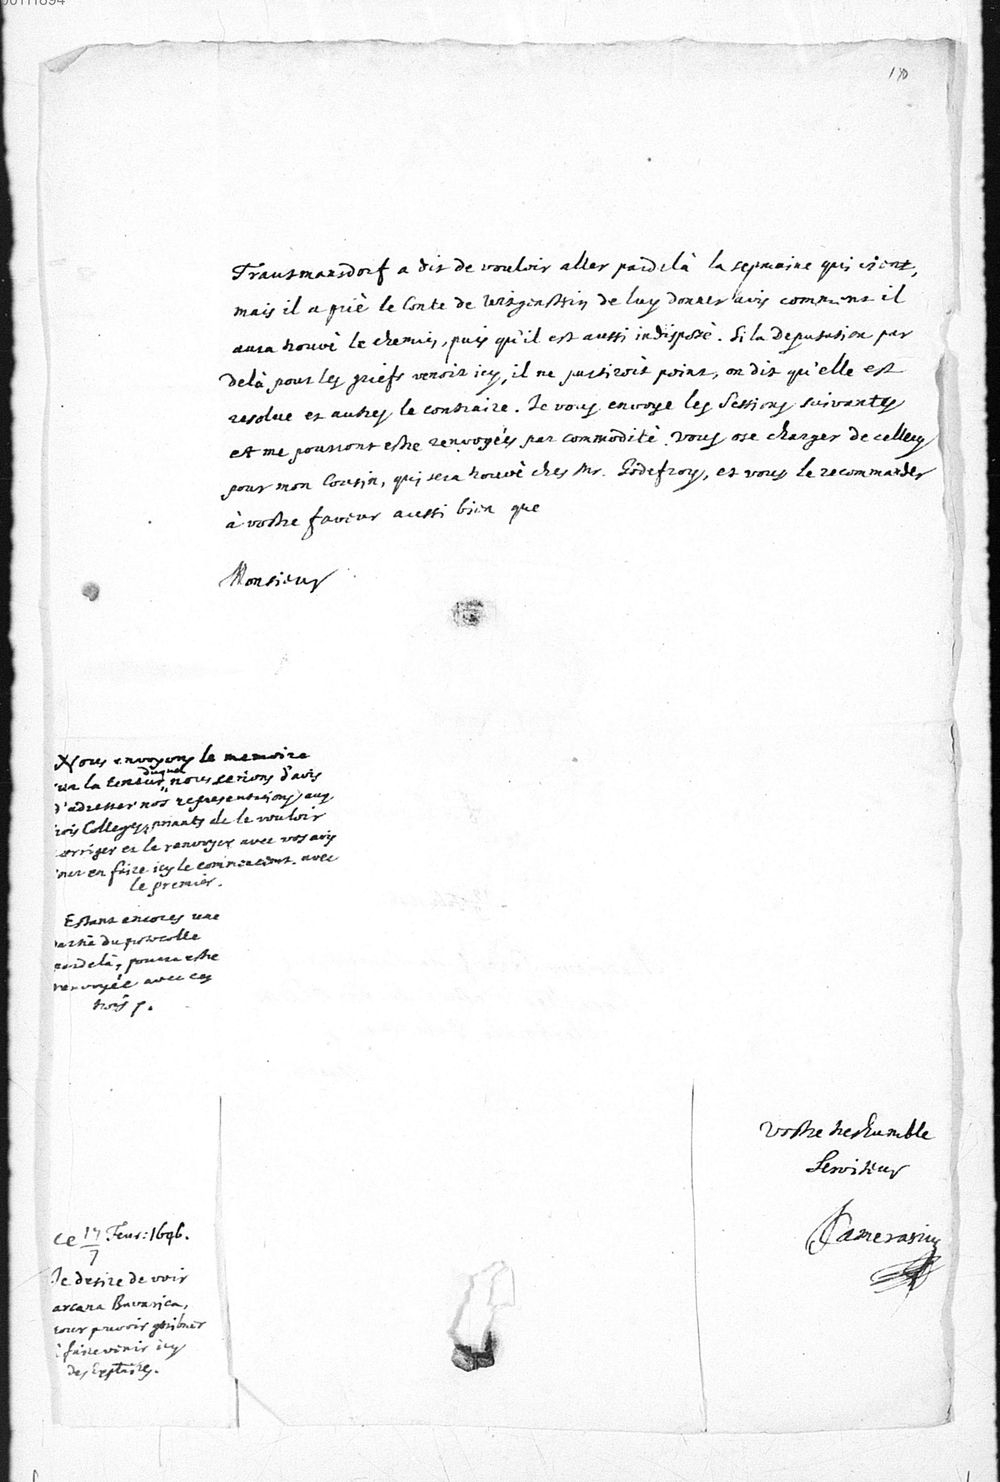 170
Trautmansdorf a dit de vouloir aller pardelà la sepmaine qui vient,
mais il a prié le Conte de Witgenstein de luy donner avis comment il
aura trouvé le chemin, puis qu'il est aussi indisposé. Si la deputation par
delà pour les griefs venoit icy, il ne partiroit point, on dit qu'elle est
resolue et autres le contraire. Je vous envoye les Sessions suivantes
et me pourront estre renvoyées par commodité. Vous ose charger de celle cy
pour mon Cousin, qui sera trouvé ches Mr. Godefroy, et vous le recommander
à vostre faveur aussi bien que
Monsieur
Nous envoyons le memoire
sur la teneur duquel nous serions d'avis
d'adresser nos representations aux
trois Colleges, priants de le vouloir
corriger et le renvoyer avec vos avis
pour en faire icy le commencement avec
le premier.
Estant encores une
partie du protocolle
pardelà, pourra estre
renvoyée avec ces
trois
Vostre treshumble
Serviteur
Camerarius
ce 17/7 Feur: 1646.
Je desire de voir
arcana Bavarica,
pour pouvoir
faire venir icy
des